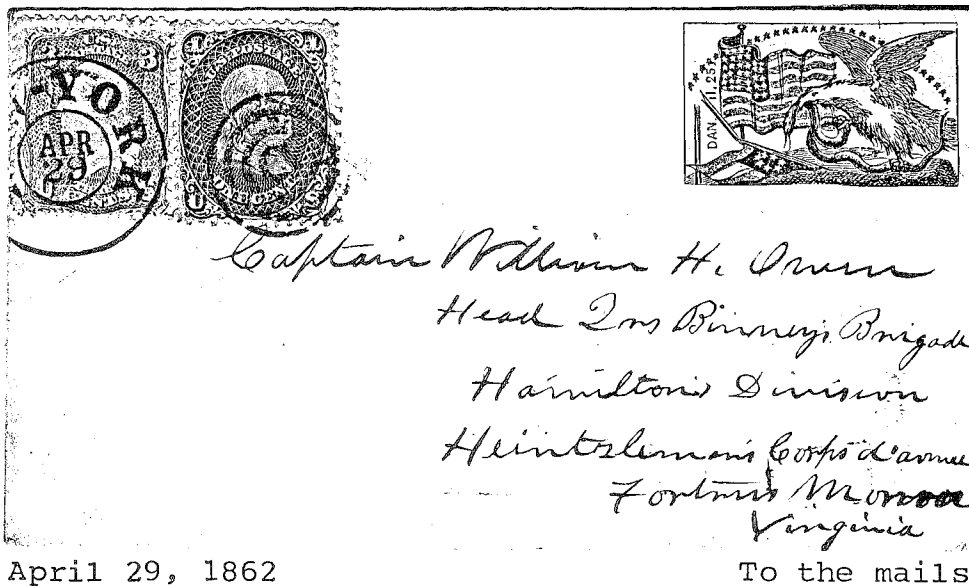 U.S.
3 3
YORK
APR
29
U.S. POSTAGE
1 1
ONE CENT
DAN 11.25
Captain William H. Owen
Head Qrs Birney's Brigade
Hamilton's Division
Heintzleman's Corps d'armee
Fortress Monroe
Virginia
April 29, 1862
To the mails